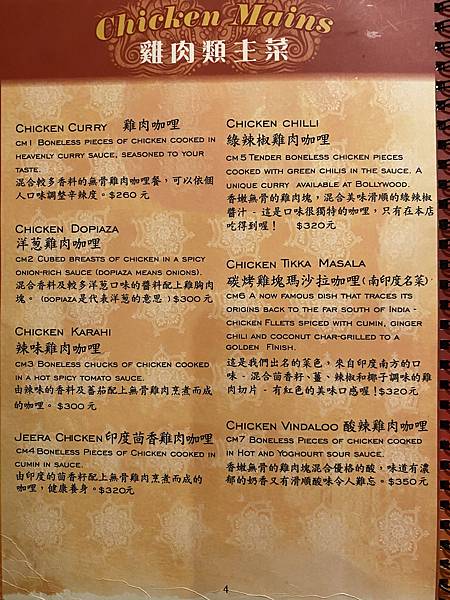 Chicken Mains
雞肉類主菜
CHICKEN CURRY 雞肉咖哩
CM1 BONELESS PIECES OF CHICKEN COOKED IN
HEAVENLY CURRY SAUCE, SEASONED TO YOUR
TASTE.
混合較多香料的無骨雞肉咖哩餐，可以依個
人口味調整辛辣度。$260 元
CHICKEN DOPIAZA
洋葱雞肉咖哩
CM2 CUBED BREASTS OF CHICKEN IN A SPICY
ONION-RICH SAUCE (DOPIAZA MEANS ONIONS).
混合香料及較多洋葱口味的醬料配上雞胸肉
塊。(DOPIAZA是代表洋葱的意思 ) $300 元
CHICKEN KARAHI
辣味雞肉咖哩
CM3 BONELESS CHUCKS OF CHICKEN COOKED
IN A HOT SPICY TOMATO SAUCE.
由辣味的香料及蕃茄配上無骨雞肉烹煮而成
的咖哩。$300元
JEERA CHICKEN 印度茴香雞肉咖哩
CM4 BONELESS PIECES OF CHICKEN COOKED IN
CUMIN IN SAUCE.
由印度的茴香籽配上無骨雞肉烹煮而成的
咖哩，健康養身。$320元
CHICKEN CHILLI
綠辣椒雞肉咖哩
CM5 TENDER BONELESS CHICKEN PIECES
COOKED WITH GREEN CHILIS IN THE SAUCE. A
UNIQUE CURRY AVAILABLE AT BOLLYWOOD.
香嫩無骨的雞肉塊，混合美味滑順的綠辣椒
醬汁 - 這是口味很獨特的咖哩，只有在本店
吃得到喔！ $320元
CHICKEN TIKKA MASALA
碳烤雞塊瑪沙拉咖哩(南印度名菜)
CM6 A NOW FAMOUS DISH THAT TRACES ITS
ORIGINS BACK TO THE FAR SOUTH OF INDIA -
CHICKEN FLLETS SPICED WITH CUMIN, GINGER
CHILI AND COCONUT CHAR-GRILLED TO A
GOLDEN FINISH.
這是我們出名的菜色，來自印度南方的口
味 - 混合茴香籽、薑、辣椒和椰子調味的雞
肉切片 - 有紅色的美味口感喔！$320元
CHICKEN VINDALOO 酸辣雞肉咖哩
CM7 BONELESS PIECES OF CHICKEN COOKED
IN HOT AND YOGHOURT SOUR SAUCE.
香嫩無骨的雞肉塊混合優格的酸，味道有濃
郁的奶香又有滑順酸味令人難忘。$350元
4